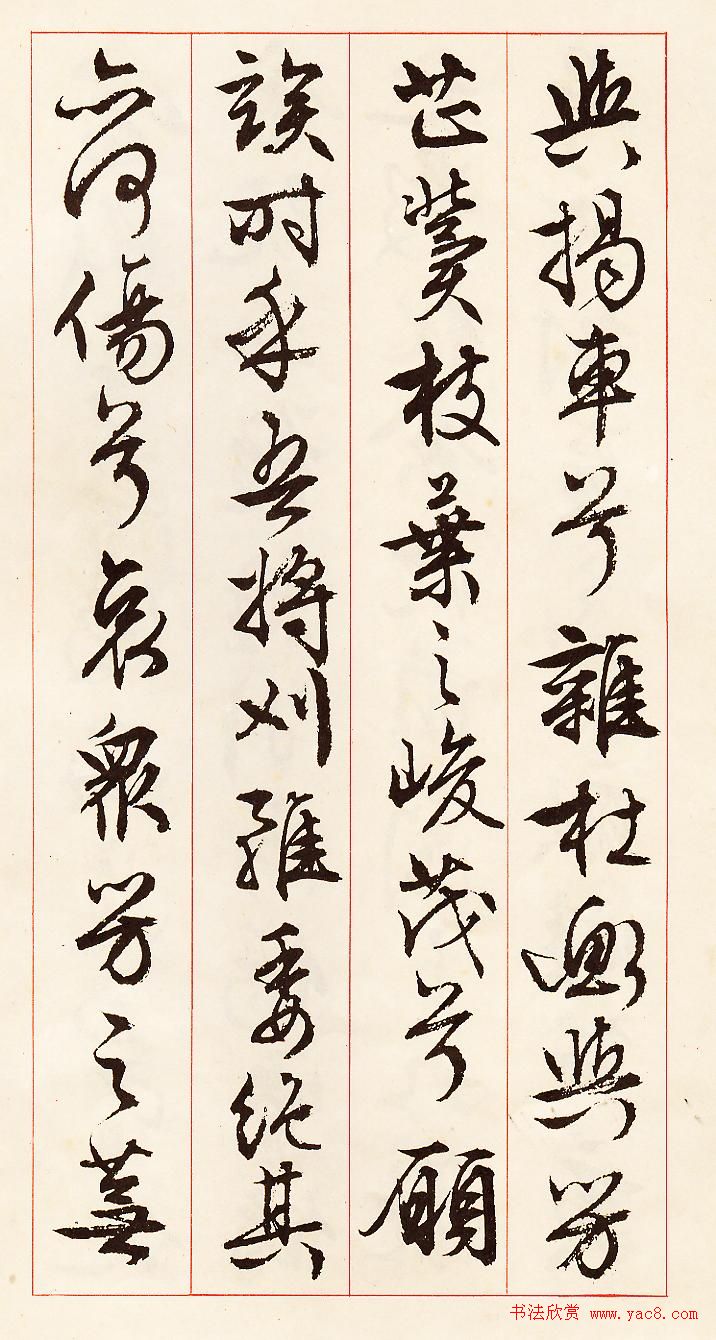 與揭車兮雜杜衡與芳
芷冀枝葉之峻茂兮願
竢时乎吾將刈雖委絕其
亦何傷兮哀衆芳之蕪
书法欣赏 www.yac8.com